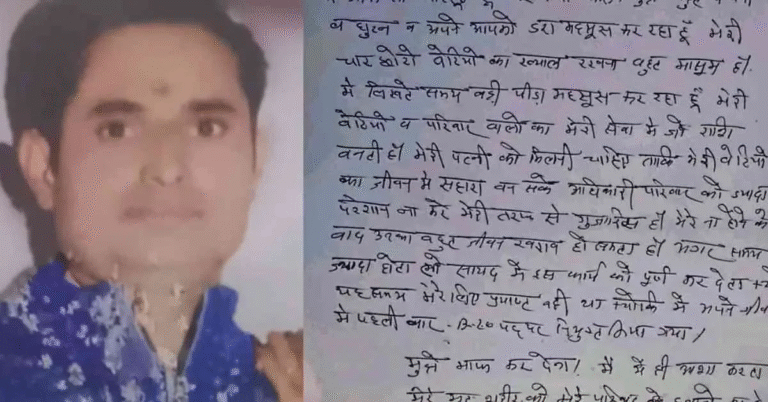 व घुटन व अपने आपको डरा महसूस कर रहा हूँ मेरी
चार छोटी बेटियो का ख्याल रखना वहुत मासूम हैं.
मै लिखते समय वडी पीडा महसूस कर रहा हूँ मेरी
बेटियो व परिवार वालो का मेरी सेवा मे जो राशि
वनती हो मेरी पत्नी को मिलनी चाहिए ताकि मेरी बेटियो
का जीवन मे सहारा वन सके अधिकारी परिवार को ज्यादा
परेशान ना करे मेरी तरफ से गुजारिस हैं मेरे ना होने के
वाद उनका वहुत जीवन खराव हो सकता हैं मगर समय
ज्यादा होता तो सायद मै इस कार्य को पूर्ण कर देता
यह समय मेरे लिए प्रयाप्त नही था क्योकि मै अपने
मे पहली वार पद पर नियुक्त किया गया।
मुझे माफ कर देना। मै
मेरे शरीर को मेरे परिवार के